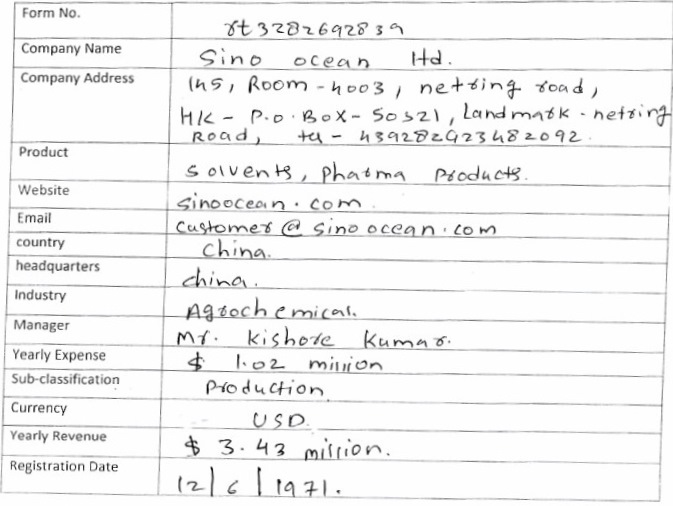 Form No. rt3282692839
Company Name Sino ocean ltd.
Company Address 145, Room - 4003, netring road,
HK - P.O. Box - 50521, Landmark - netring
Road, tel - 4392829234 82092.
Product Solvents, Pharma Products.
Website sinoocean.com
Email customer@sinoocean.com
country China.
headquarters china.
Industry Agrochemical.
Manager Mr. Kishore Kumar.
Yearly Expense $ 1.02 million
Sub-classification Production
Currency USD.
Yearly Revenue $ 3.43 million.
Registration Date 12/6/1971.